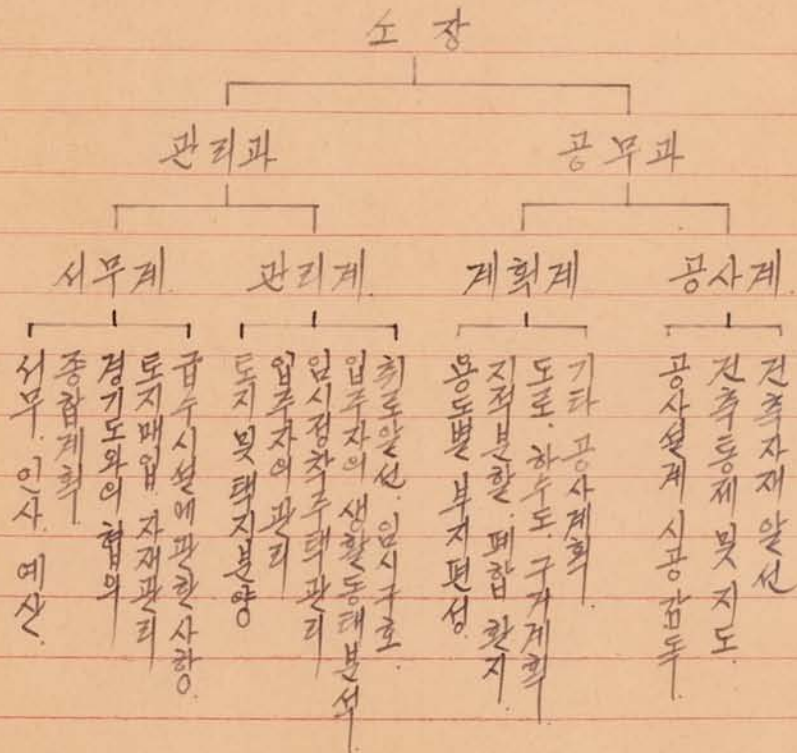 소장
관리과 공무과
서무계. 관리계. 계획계 공사계.
서무. 인사. 예산.
종합계획.
경기도와의 협의
토지매입. 자재관리
급수시설에 관한 사항.
토지 및 택지분양
입주자의 관리
임시정착주택관리
입주자의 생활동태분석
취로알선. 임시구호.
용도별 부지편성.
지적분할. 폐합 환지.
도로. 하수도. 구거계획
기타 공사계획.
공사설계 시공감독.
건축통제 및 지도.
건축자재 알선